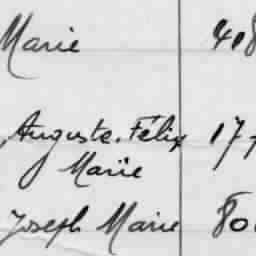 Marie 408
Auguste. Félix 17
Marie
Joseph Marie 80